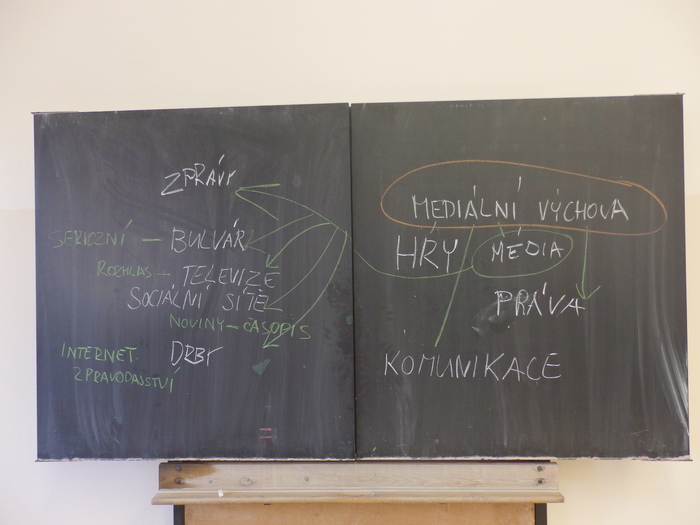 ZPRÁVY
SERIOZNÍ – BULVÁR
ROZHLAS – TELEVIZE
SOCIÁLNÍ SÍTĚ
NOVINY – ČASOPIS
INTERNET. DRBY
ZPRAVODAJSTVÍ
MEDIÁLNÍ VÝCHOVA
HRY MÉDIA
PRÁVA
KOMUNIKACE